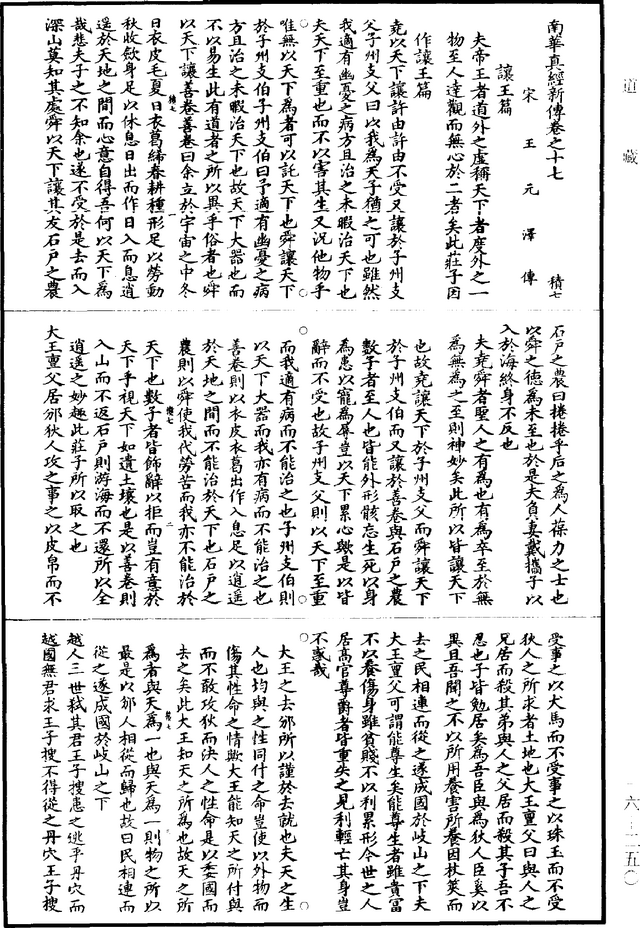 道藏
南華真經新傳卷之十七 積七
宋王元澤傳
讓王篇
夫帝王者道外之虛稱天下者度外之一
物至人達觀而無心於二者矣此莊子因
作讓王篇
堯以天下讓許由許由不受又讓於子州支
父子州支父曰以我為天子猶之可也雖然
我適有幽憂之病方且治之未暇治天下也
夫天下至重也而不以害其生又況他物乎
唯無以天下為者可以託天下也舜讓天下
於子州支伯子州支伯曰予適有幽憂之病
方且治之未暇治天下也故天下大器也而
不以易生此有道者之所以異乎俗者也舜
以天下讓善卷善卷曰余立於宇宙之中冬
日衣皮毛夏日衣葛絺春耕種形足以勞動
秋收斂身足以休息日出而作日入而息逍
遙於天地之間而心意自得吾何以天下為
哉悲夫子之不知余也遂不受於是去而入
深山莫知其處舜以天下讓其友石戶之農
石戶之農曰捲捲乎后之為人葆力之士也
以舜之德為未至也於是夫負妻戴攜子以
入於海終身不反也
夫堯舜者聖人之有為也有為卒至於無
為無為之至則神妙矣此所以皆讓天下
也故堯讓天下於子州支父而舜讓天下
於子州支伯而又讓於善卷與石戶之農
數子者至人也皆能外形骸忘生死以身
為患以寵為辱豈以天下累心歟是以皆
辭而不受也故子州支父則以天下至重
而我適有病而不能治之也子州支伯則
以天下大器而我亦有病而不能治之也
善卷則以衣皮衣葛出作入息足以逍遙
於天地之間而不能治於天下也石戶之
農則以舜使我代勞苦而我亦不能治於
天下也數子者皆飾辭以拒而豈有意於
天下乎視天下如遺土壤也是以善卷則
入山而不返石戶則游海而不還所以全
逍遙之妙趣此莊子所以取之也
大王亶父居邠狄人攻之事之以皮帛而不
受事之以犬馬而不受事之以珠玉而不受
狄人之所求者土地也大王亶父曰與人之
兄居而殺其弟與人之父居而殺其子吾不
忍也子皆勉居矣為吾臣與為狄人臣奚以
異且吾聞之不以所用養害所養因杖筴而
去之民相連而從之遂成國於岐山之下夫
大王亶父可謂能尊生矣能尊生者雖貴富
不以養傷身雖貧賤不以利累形今世之人
居高官尊爵者皆重失之見利輕亡其身豈
不惑哉
大王之去邠所以謹於去就也夫天之生
人也均與之性同付之命豈使以外物而
傷其性命之情歟大王能知天之所付與
而不敢攻狄而決人之性命是以委國而
去之矣此大王知天之所為也故天之所
為者與天為一也與天為一則物之所以
最是以邠人相從而歸也故曰民相連而
從之遂成國於岐山之下
越人三世弒其君王子搜患之逃乎丹穴而
越國無君求王子搜不得從之丹穴王子搜
六-二五〇